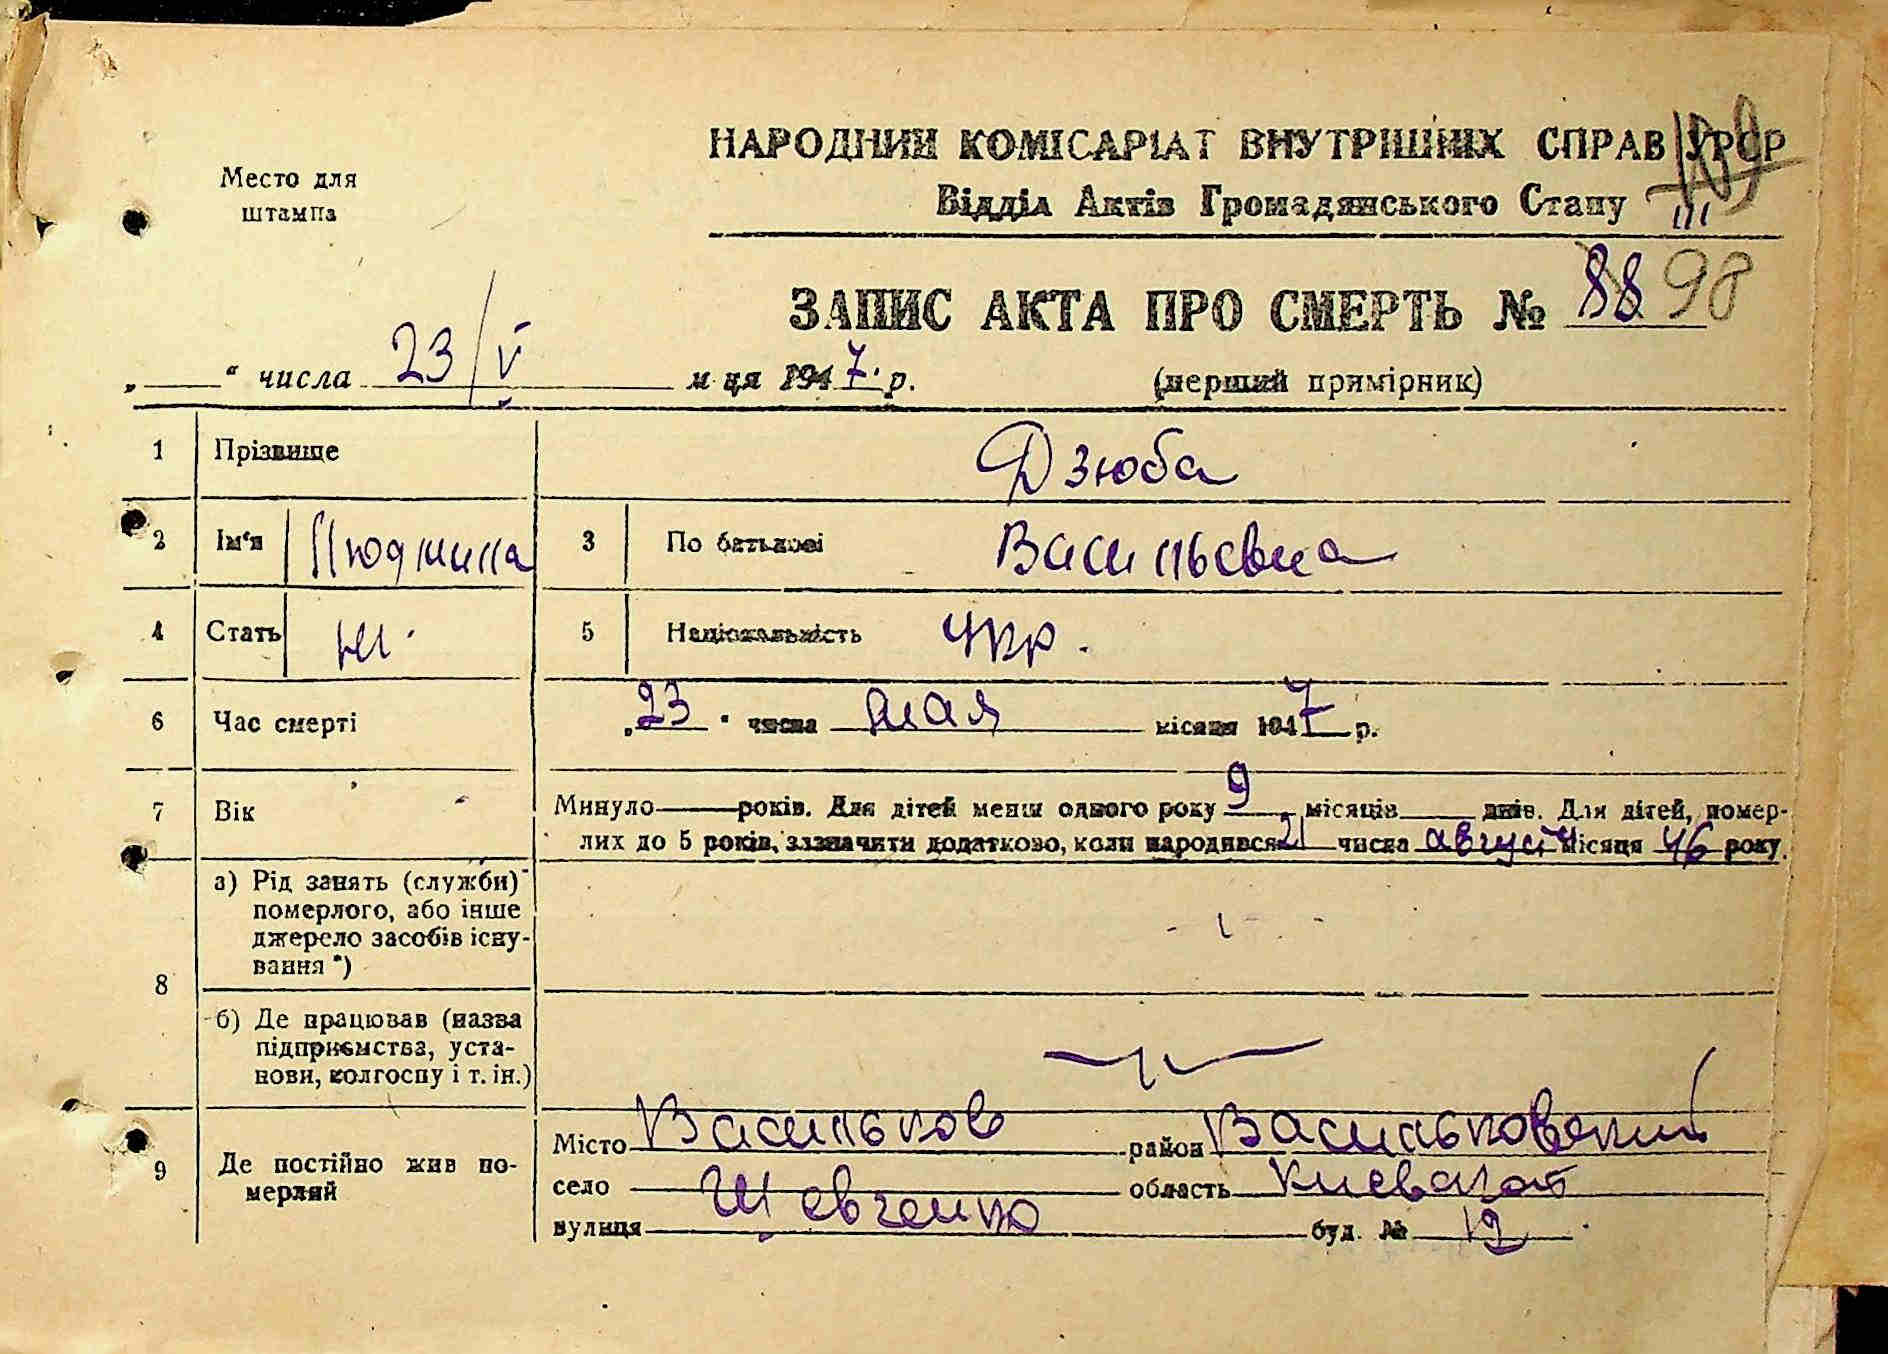 Место для
штампа
НАРОДНИЙ КОМІСАРІАТ ВНУТРІШНІХ СПРАВ УРСР
Відділ Актів Громадянського Стану
ЗАПИС АКТА ПРО СМЕРТЬ № 88 98
„ “ числа 23/V м-ця 1947. р. (перший примірник)
1 Прізвище Дзюба
2 Ім'я Людмила 3 По батькові Васильевна
4 Стать ж. 5 Національність Укр.
6 Час смерті „23“ числа мая місяця 1947 р.
7 Вік Минуло — років. Для дітей менш одного року 9 місяців днів. Для дітей, помер-
лих до 5 років, зазначити додатково, коли народився 21 числа август місяця 46 року.
8 а) Рід занять (служби)
померлого, або інше
джерело засобів існу-
вання *)
б) Де працював (назва
підприємства, уста-
нови, колгоспу і т. ін.)
9 Де постійно жив по-
мерлий
Місто Васильков район Васильковский
село область Киевская
вулиця Шевченко буд. № 12